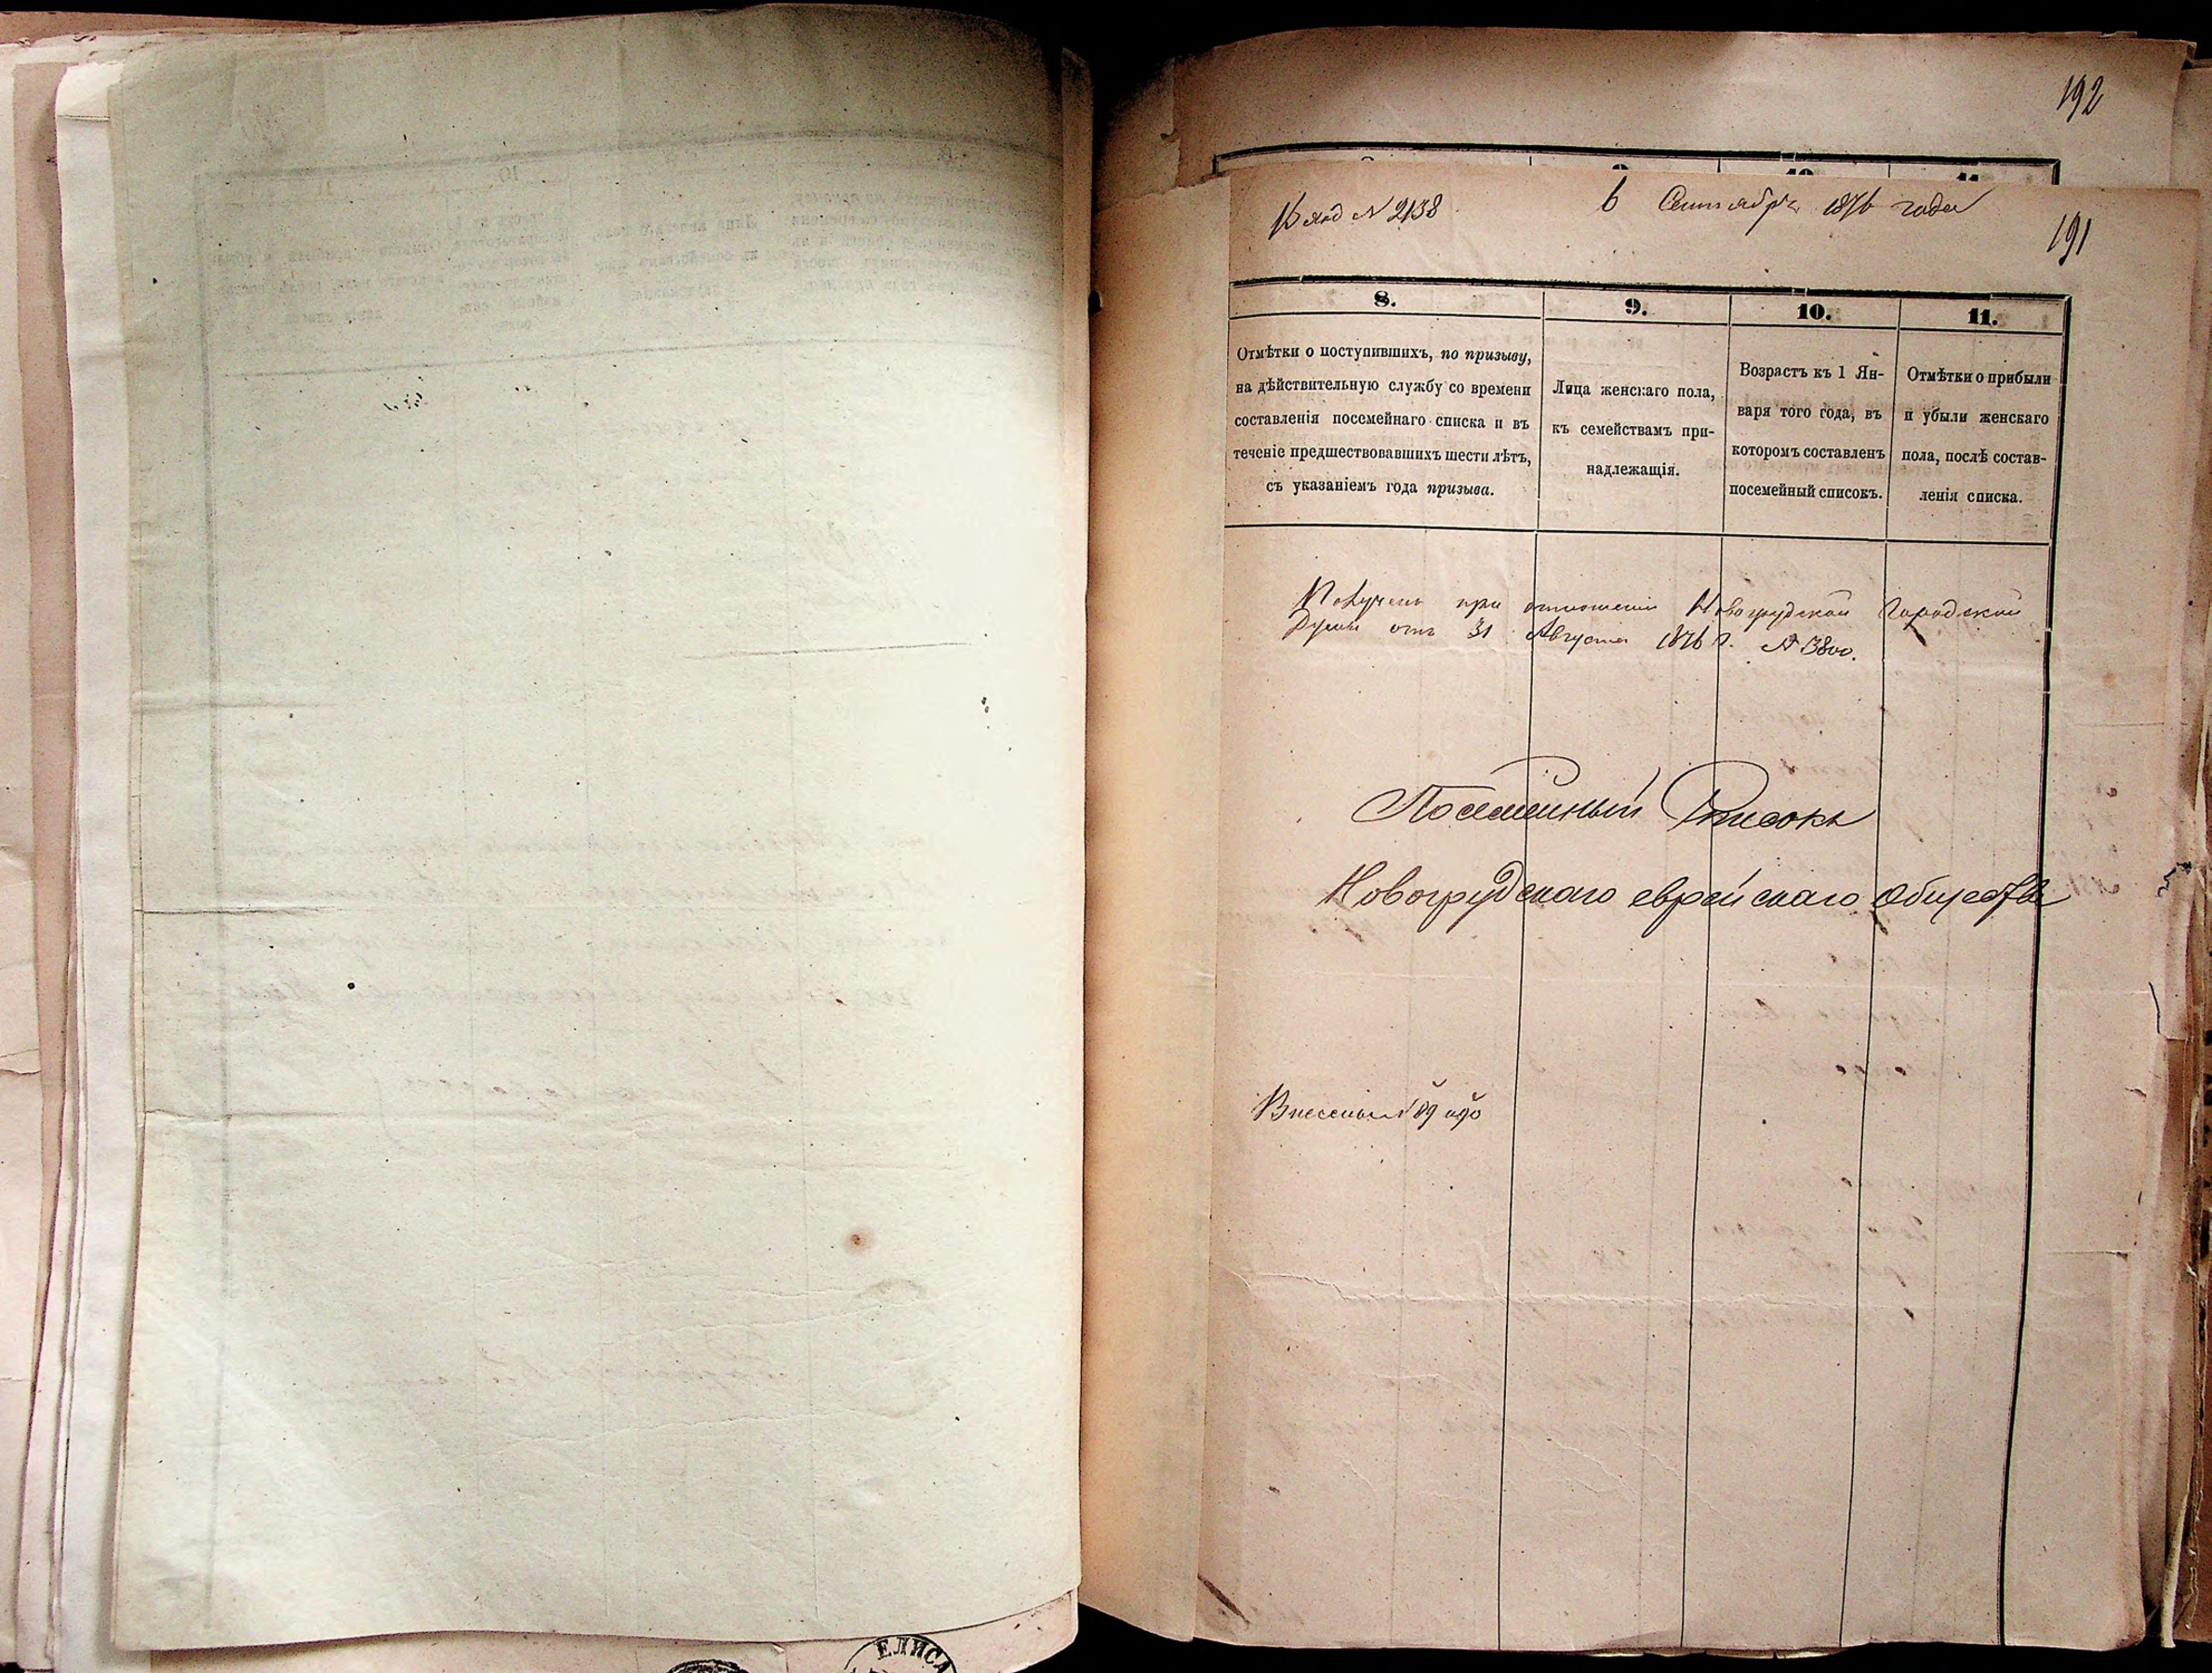 192
Вход № 2138 6 Сентября 1876 года
191
8.
Отмѣтки о поступившихъ, по призыву,
на дѣйствительную службу со времени
составленія посемейнаго списка и въ
теченіе предшествовавшихъ шести лѣтъ,
съ указаніемъ года призыва.
9.
Лица женскаго пола,
къ семействамъ при-
надлежащія.
10.
Возрастъ къ 1 Ян-
варя того года, въ
которомъ составленъ
посемейный списокъ.
11.
Отмѣтки о прибыли
и убыли женскаго
пола, послѣ состав-
ленія списка.
Получень при отношеніи Новогрудской Городской
Думы отъ 31 Августа 1876 г. № 3800.
Посемейный Списокъ
Новогрудскаго еврейскаго Общества
89 и 90
ЕЛИСА